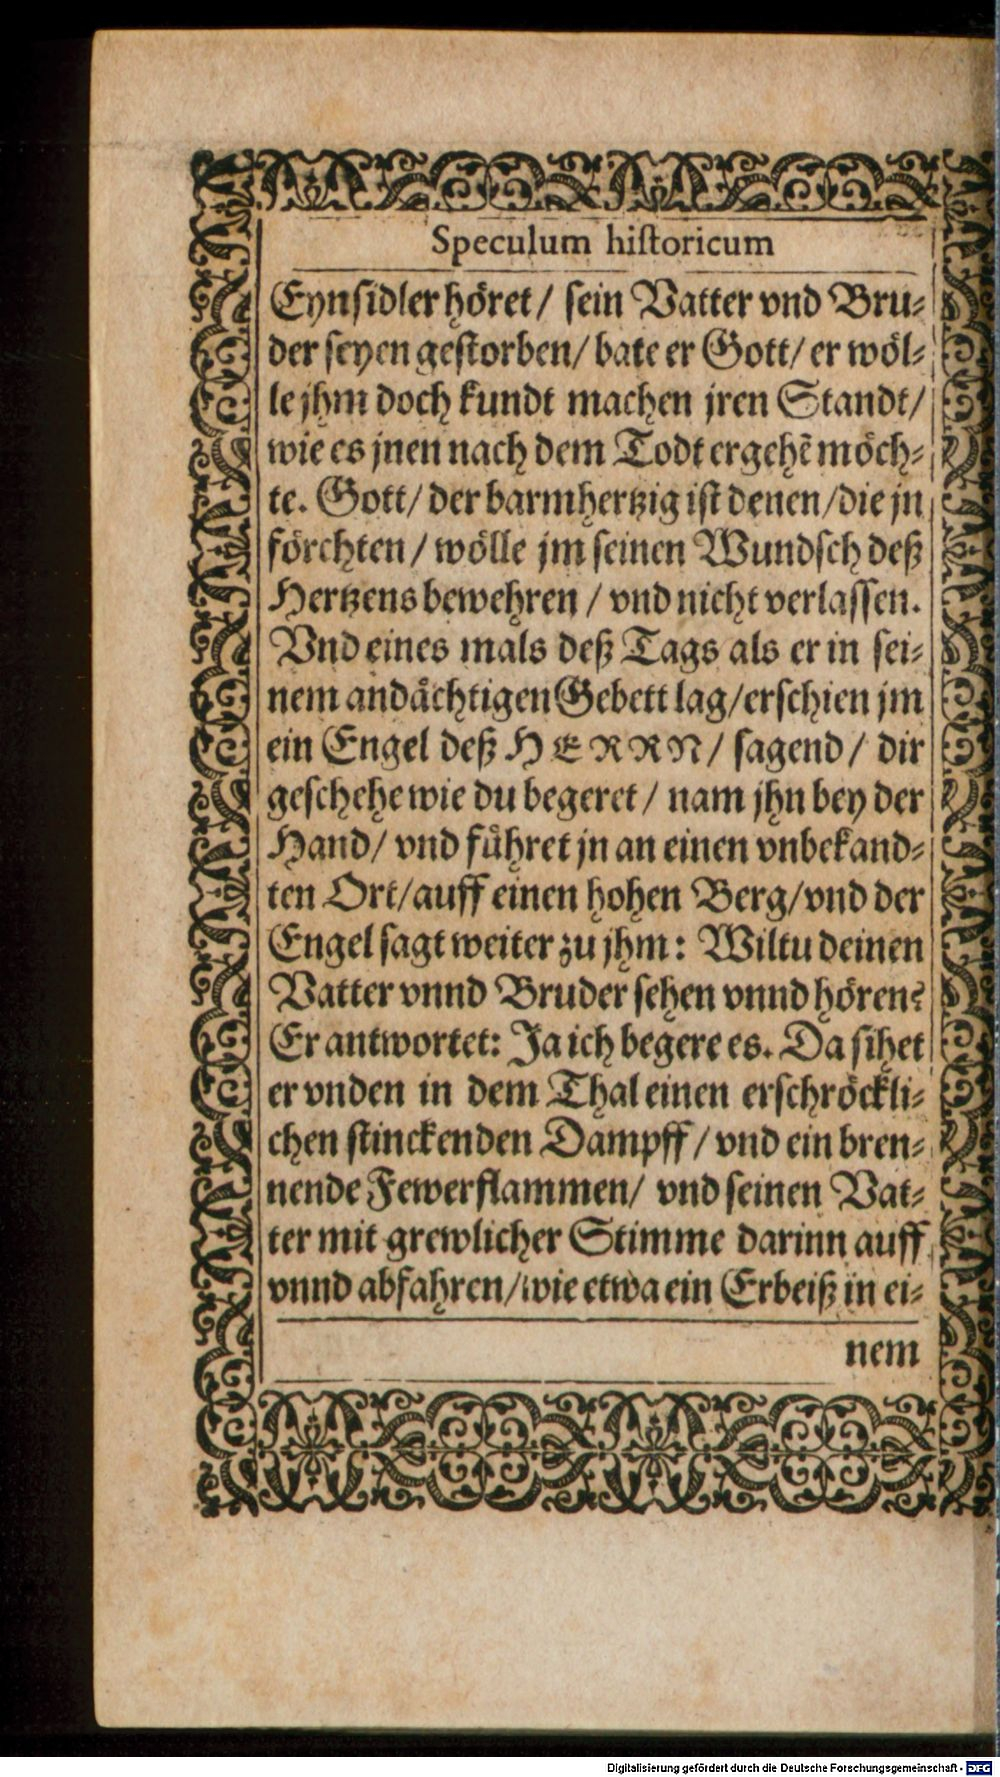 Speculum hiſtoricum
Eynſidler höret / ſein Vatter vnd Bru⸗
der ſeyen geſtorben / bate er Gott / er wöl⸗
le jhm doch kundt machen jren Standt /
wie es jnen nach dem Todt ergehẽ möch⸗
te. Gott / der barmhertzig iſt denen / die jn
förchten / wölle jm ſeinen Wundſch deß
Hertzens bewehren / vnd nicht verlaſſen.
Vnd eines mals deß Tags als er in ſei⸗
nem andächtigen Gebett lag / erſchien jm
ein Engel deß HERRN / ſagend / dir
geſchehe wie du begeret / nam jhn bey der
Hand / vnd führet jn an einen vnbekand⸗
ten Ort / auff einen hohen Berg / vnd der
Engel ſagt weiter zu jhm: Wiltu deinen
Vatter vnnd Bruder ſehen vnnd hören?
Er antwortet: Ja ich begere es. Da ſihet
er vnden in dem Thal einen erſchröckli⸗
chen ſtinckenden Dampff / vnd ein bren⸗
nende Fewerflammen / vnd ſeinen Vat⸗
ter mit grewlicher Stimme darinn auff
vnnd abfahren / wie etwa ein Erbeiß in ei⸗
nem
Digitalisierung gefördert durch die Deutsche Forschungsgemeinschaft - DFG